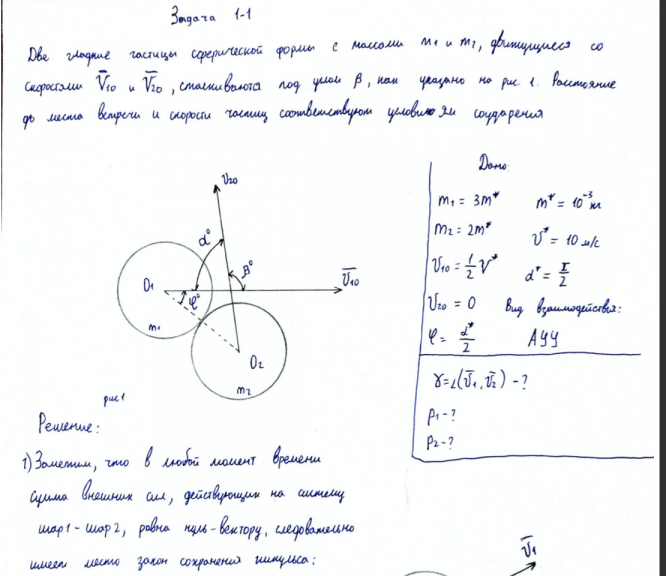 Задача 1-1
Две гладкие частицы сферической формы с массами m1 и m2, движущиеся со
скоростями V̄10 и V̄20, сталкиваются под углом β, как указано на рис. 1. Расстояние
до места встречи и скорости частиц соответствуют условиям соударения
V20
α°
β°
V̄10
O1
φ°
m1
O2
m2
рис 1
Дано:
m1 = 3m*   m* = 10⁻³ кг
m2 = 2m*   V* = 10 м/с
V10 = 1/2 V*   α* = π/2
V20 = 0   Вид взаимодействия:
φ = α*/2   АУУ
γ = ∠(V̄1, V̄2) - ?
p1 - ?
p2 - ?
Решение:
1) Заметим, что в любой момент времени
сумма внешних сил, действующих на систему
шар1 - шар2, равна нуль-вектору, следовательно
имеет место закон сохранения импульса:
V̄1